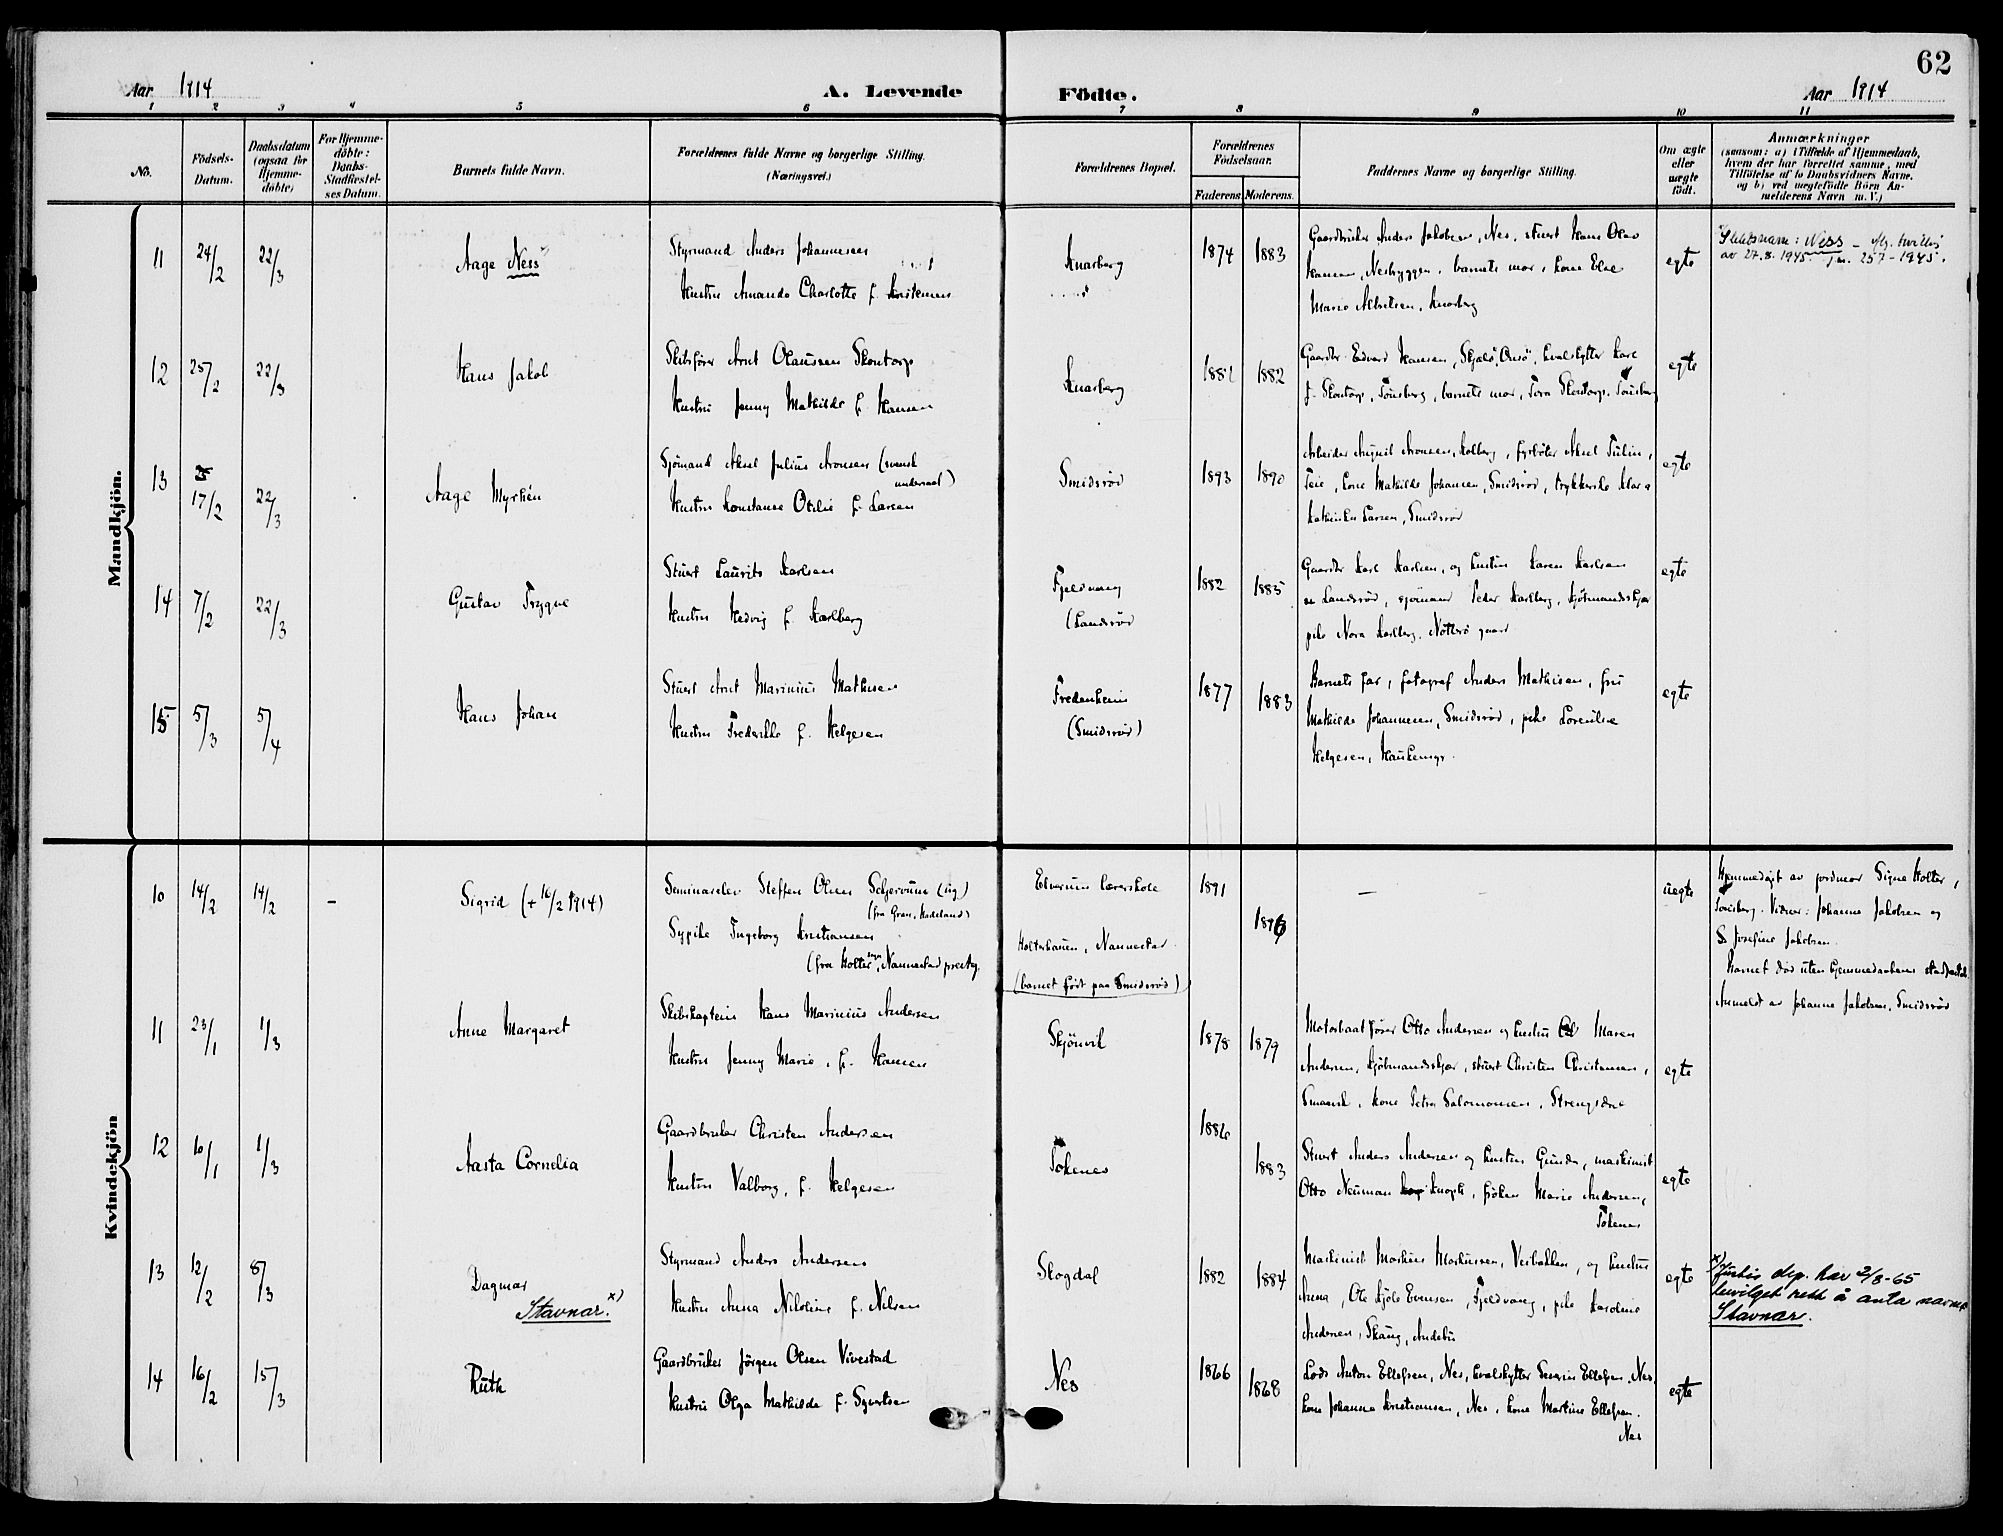 62
Aar 1914
A. Levende Födte.
Aar 1914
1 2 3 4 5 6 7 8 9 10 11
No.
Födsels-Datum.
Daabsdatum (ogsaa for Hjemme-döbte)
For Hjemme-döbte: Daabs-Stadfæstel-ses Datum.
Barnets fulde Navn.
Forældrenes fulde Navne og borgerlige Stilling.
(Næringsvei.)
Forældrenes Bopæl.
Forældrenes Födselsaar.
Faderens. Moderens.
Faddernes Navne og borgerlige Stilling.
Om ægte eller uægte födt.
Anmærkninger
(saasom: a) i Tilfælde af Hjemmedaab,
hvem der har forrettet samme, med
Tilföielse af to Daabsvidners Navne,
og b) ved uægtefödte Börn An-
melderens Navn m. V.)
Mandkjön.
11 24/2 22/3
Aage Ness
Styrmand Anders Johannesen
Hustru Amanda Charlotte f. Kristensen
Knarberg
1874 1883
Gaardbruker Anders Jakobsen, Nes, stuert Hans Olav
Hansen, Nesbyggen, barnets mor, kone Else
Marie Albretsen, Knarberg
egte
Slektsnavn: Ness
av 27.8.1945. jnr. 257-1945.
12 25/2 22/3
Hans Jakob
Skibsfører Arnt Olaussen Skontorp
Hustru Jenny Mathilde f. Hansen
Knarberg
1881 1882
Gaardbr. Edvard Hansen, Onsö, hvalskytter Karl
f. Skontorp, Tönsberg, barnets mor, Tora Skontorp, Tönsberg
egte
13 17/2 22/3
Aage Myrhén
Sjömand Aksel Julius Aronsen (svensk
undersaat)
Hustru Konstanse Otilie f. Larsen
Smidsröd
1893 1890
Arbeider August Aronsen, Kolberg, fyrböter Aksel Tulin,
Teie, kone Mathilde Johansen, Smidsröd, trykkerske Klara
Kathinka Larsen, Smidsröd
egte
14 7/2 22/3
Gustav Trygve
Stuert Laurits Karlsen
Hustru Hedvig f. Karlberg
Fjeldvang
(Landsröd
1882 1885
Gaardbr Karl Karlsen, og hustru Karen Karlsen
Landsröd, sjömand Peder Karlberg, Kjöbmandskjær
pike Nora Karlberg, Nötterö gaard
egte
15 5/3 5/4
Hans Johan
Stuert Arnt Marinius Mathisen
Hustru Frederikke f. Helgesen
Fredenheim
(Smidsröd)
1877 1883
Barnets far, fotograf Anders Mathisen, fru
Mathilde Johannesen, Smidsröd, pike Lorentine
Helgesen, Haukemyr.
egte
Kvindekjön
10 14/2 14/2 –
Sigrid (+ 16/2 1914)
Seminarelev Steffen Olsen Schjervum (ug.)
(fra Gran, Hadeland)
Sypike Ingeborg Kristiansen
(fra Holter sogn, Nannestad prestg.
Elverum lærerskole
Holterhauen, Nannestad
(barnet födt paa Smidsröd)
1891
1893
– –
uegte
Hjemmedöpt av jordmor Signe Holter,
Tönsberg. Vidner: Johanne Jakobsen og
Josefine Jakobsen.
Barnet död uten hjemmedaabens stadfæstelse
Anmeldt av Johanne Jakobsen, Smidsröd
11 23/1 1/3
Anne Margaret
Skibskaptein Hans Marinius Andersen
Hustru Jenny Marie, f. Hansen
Skjönvik
1878 1879
Motorbaatförer Otto Andersen og hustru Maren
Andersen, Kjöbmandskjær, stuert Christen Christensen,
kone Petra Salomonsen, Strengsdal
egte
12 10/1 1/3
Aasta Cornelia
Gaardbruker Christen Andersen
Hustru Valborg, f. Helgesen
Tokenes
1886
1883
Stuert Anders Andersen og hustru Gunda, maskinist
Otto Neuman Knoph, fröken Marie Andersen,
Tokenes
egte
13 12/2 8/3
Dagmar
Stavnar. x)
Styrmand Anders Andersen
Hustru Anna Nikoline f. Nilsen
Skogdal
1882 1884
Maskinist Markus Markussen, Vestbakken, og hustru
Anna, Ole Kjöle Evensen, Fjeldvang, pike Karoline
Andersen, Skaug, Andebu
egte
x) Justis dep. har 2/8-65
bevilget rett å anta navnet
Stavnar.
14 16/2 15/3
Ruth
Gaardbruker Jörgen Olsen Vivestad
Hustru Olga Mathilde f. Syvertsen
Nes
1866 1868
Lods Anton Ellefsen, Nes, hvalskytter Severin Ellefsen, Nes,
kone Johanna Kristiansen, Nes, kone Martine Ellefsen.
Nes
egte